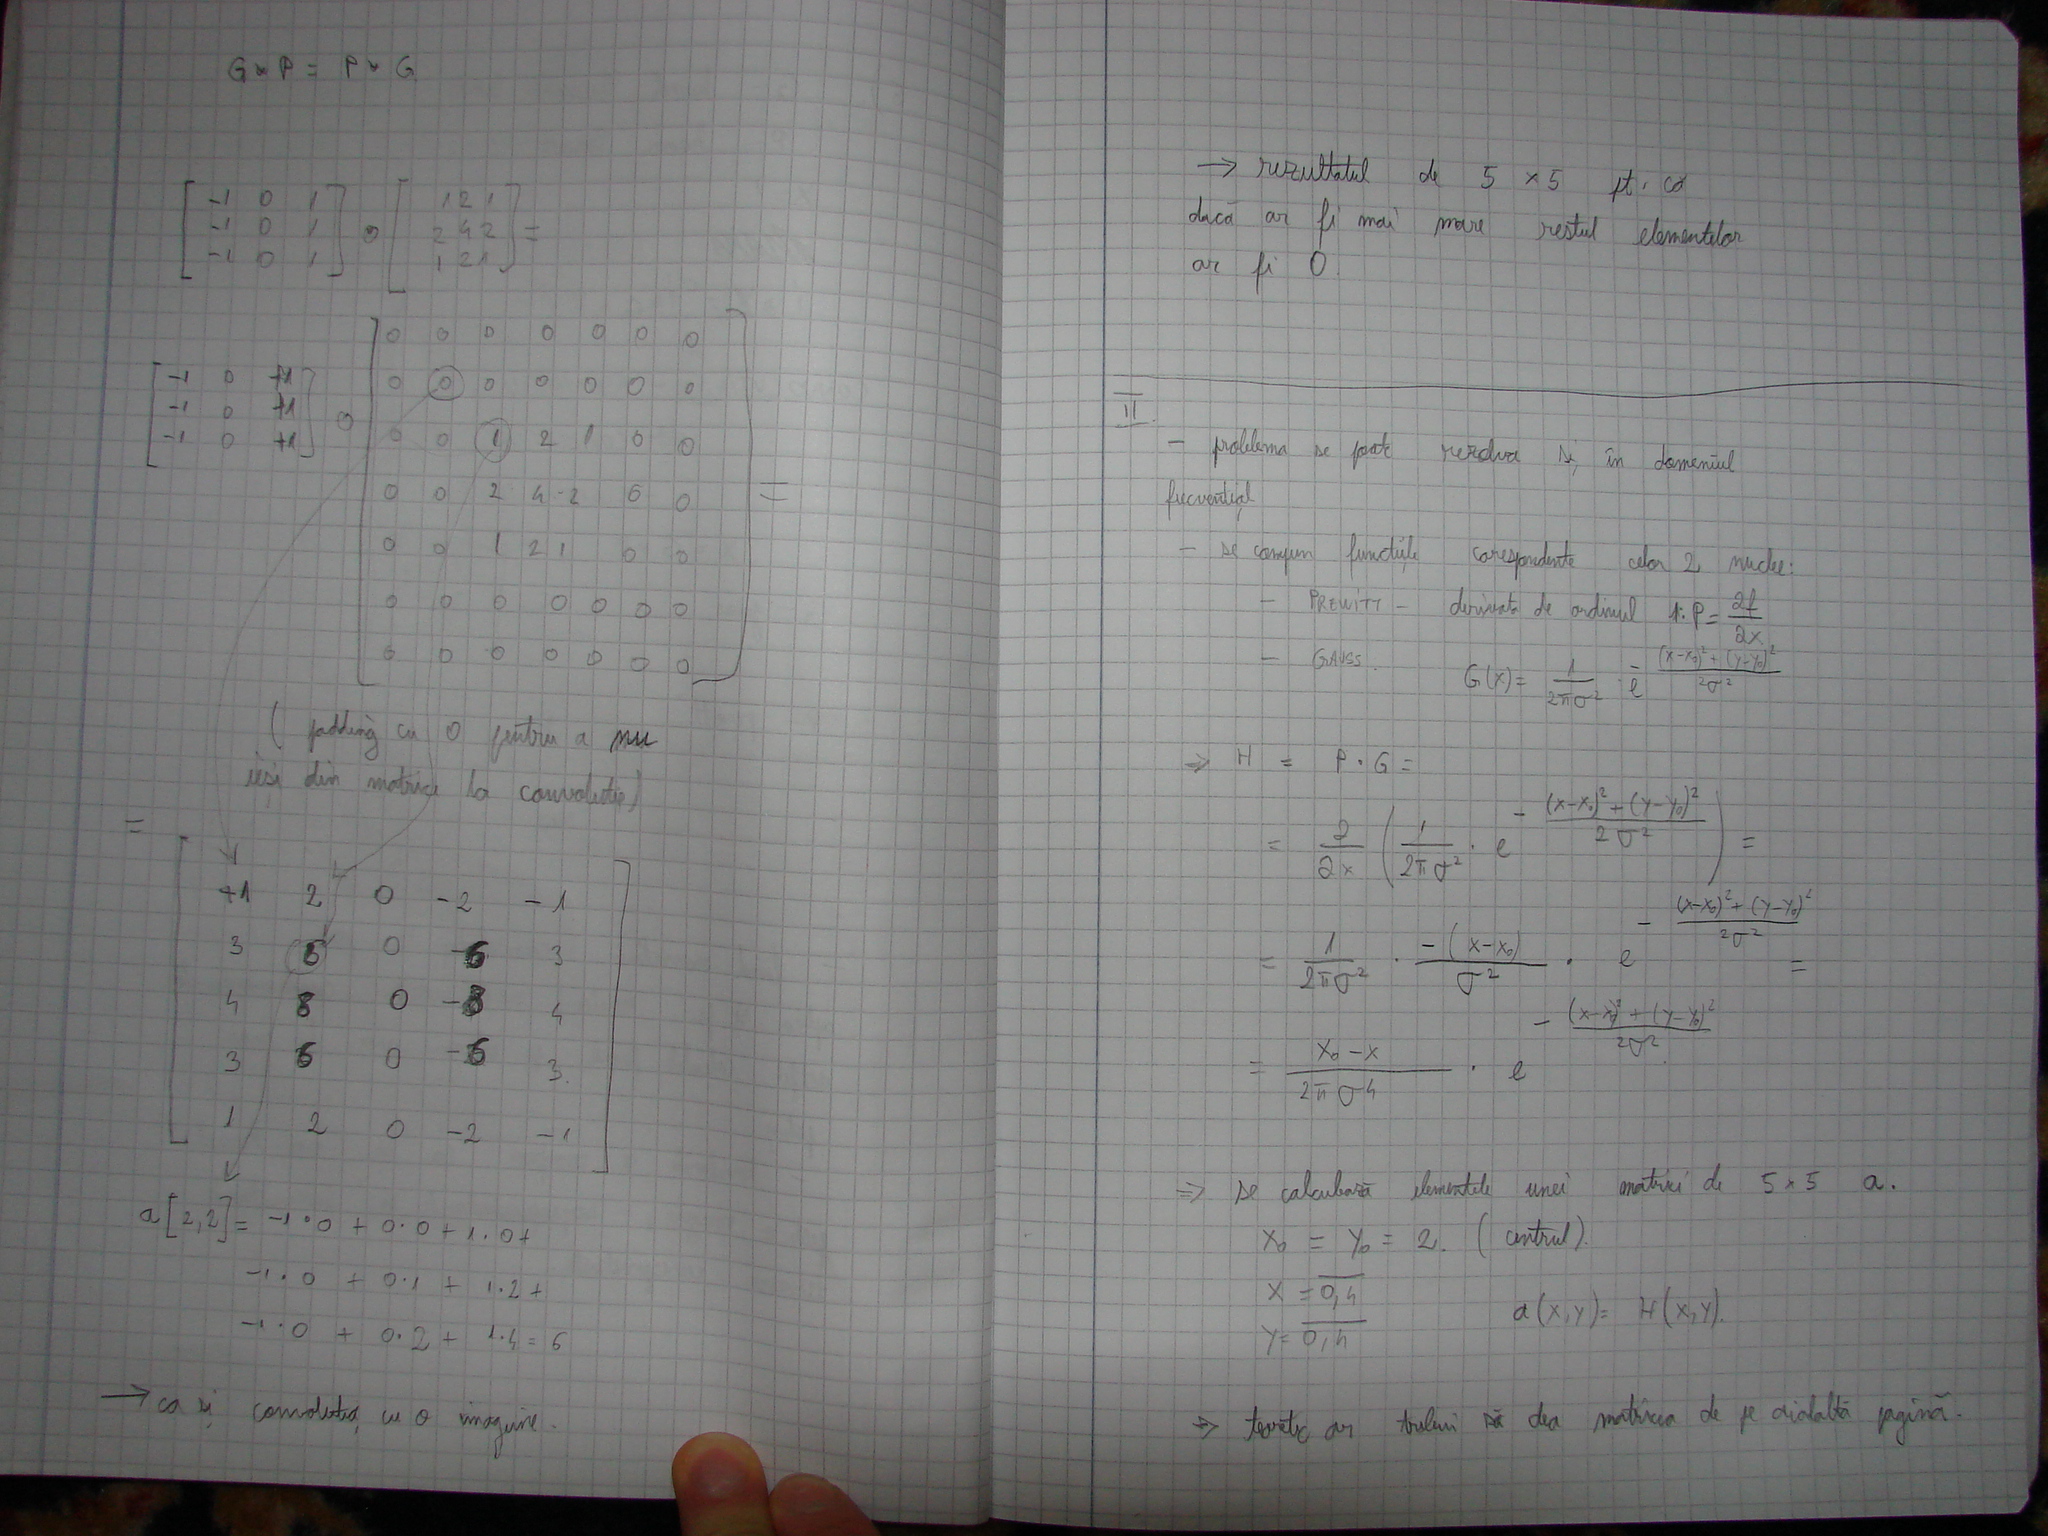 G * P = P * G
[ -1 0 1 ] [ 1 2 1 ]
[ -1 0 1 ] o [ 2 4 2 ] =
[ -1 0 1 ] [ 1 2 1 ]
0 0 0 0 0 0 0
-1 0 +1 0 0 0 0 0 0 0
-1 0 +1 o
-1 0 +1 0 0 1 2 1 0 0
0 0 2 4 2 0 0 =
0 0 1 2 1 0 0
0 0 0 0 0 0 0
0 0 0 0 0 0 0
( padding cu 0 pentru a nu
ieși din matrice la convoluție)
=
+1 2 0 -2 -1
3 6 0 -6 3
4 8 0 -8 4
3 6 0 -6 3
1 2 0 -2 -1
a[2,2] = -1·0 + 0·0 + 1·0 +
-1·0 + 0·1 + 1·2 +
-1·0 + 0·2 + 1·4 = 6
→ ca și convoluția cu o imagine.
→ rezultatul de 5 × 5 pt. că
dacă ar fi mai mare restul elementelor
ar fi 0
II.
- problema se poate rezolva și în domeniul
frecvențial
- se compun funcțiile corespondente celor 2 nuclee:
- PREWITT - derivata de ordinul 1: P = ∂f/∂x
- GAUSS. G(x) = 1/(2πσ²) · e^(-((x-x₀)² + (y-y₀)²)/(2σ²))
⇒ H = P · G =
= ∂/∂x ( 1/(2πσ²) · e^(-((x-x₀)² + (y-y₀)²)/(2σ²)) ) =
= 1/(2πσ²) · -(x-x₀)/σ² · e^(-((x-x₀)² + (y-y₀)²)/(2σ²)) =
= (x₀-x)/(2πσ⁴) · e^(-((x-x₀)² + (y-y₀)²)/(2σ²))
⇒ se calculează elementele unei matrici de 5 × 5 a.
x₀ = y₀ = 2. (centrul).
x = 0,4
y = 0,4 a(x,y) = H(x,y).
⇒ teoretic ar trebui să dea matricea de pe cialaltă pagină.